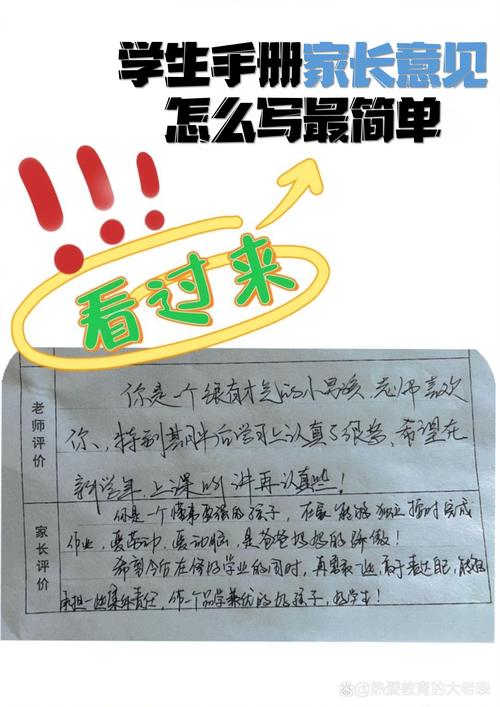 学生手册家长意见
怎么写最简单
看过来
老师评价
你是一个很有才气的小男孩,老师喜欢
你、特别期中后学习上认真了很多,希望在
新学年,上课的时候再认真些!
家长评价
你是一个懂事要强的孩子,在家能够独立按时完成
作业,爱劳动,爱动脑,是爸爸妈妈的骄傲!
希望今后在修好学业的同时,再勇敢一些,敢于表达自己,能够
承担一些集体责任,作一个品学兼优的好孩子,好学生!
@热爱教育的大老表